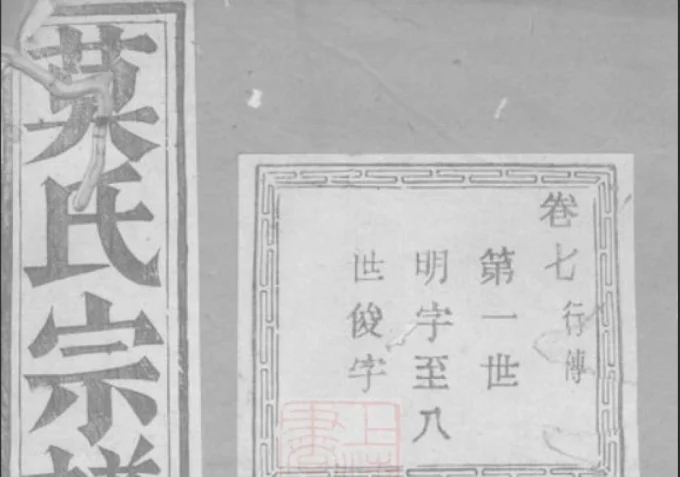 莫氏宗
卷七 行傳
第一世
明字至八
世俊字